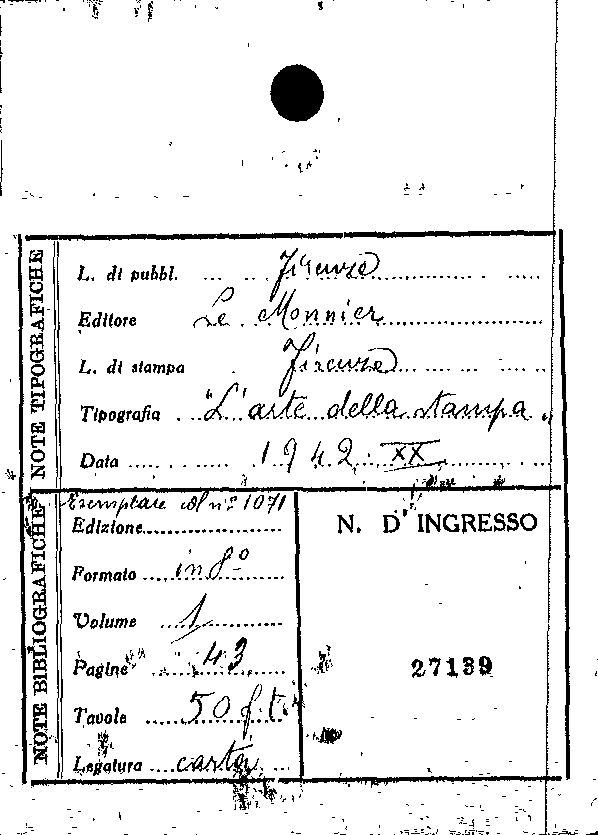 NOTE TIPOGRAFICHE
L. di pubbl. ... Firenze
Editore Le Monnier
L. di stampa Firenze
Tipografia "L'arte della stampa"
Data 1942 XX
NOTE BIBLIOGRAFICHE
Esemplare col n° 1071
Edizione
Formato in 8°
Volume 1
Pagine 43
Tavole 50 f.t.
Legatura carta
N. D'INGRESSO
27139